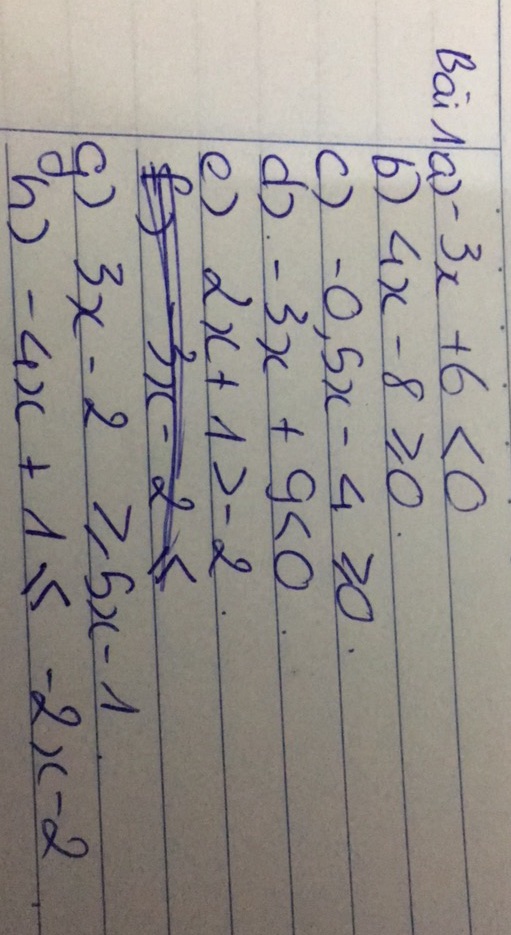 Bài 1 a) -3x + 6 < 0
b) 4x - 8 ≥ 0.
c) -0,5x - 4 ≥ 0.
d) -3x + 9 < 0.
e) 2x + 1 > -2.
f) -3x - 2 ≤
g) 3x - 2 ≥ 5x - 1
h) -4x + 1 ≤ -2x - 2